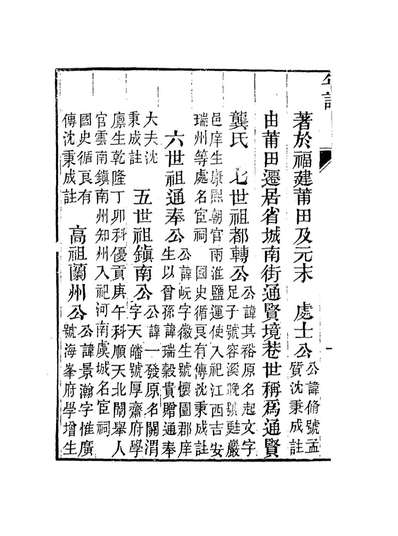 著於福建莆田及元末　處士公公諱脩號孟
質沈秉成註
由莆田遷居省城南街通賢境巷世稱爲通賢
龔氏　七世祖都轉公公諱其裕原名起文字
足子號容溪晚號巖
邑庠生康熙朝官兩淮鹽運使入祀江西吉安
瑞州等處名宦祠　國史循良有傳沈秉成註
六世祖通奉公公諱字徽生號懷園郡庠
生以曾孫諱瑞穀貴贈通奉
大夫沈
秉成註　五世祖鎮南公公諱一發原名關渭
字天皓號厚齋府學
廩生乾隆丁卯科優貢庚午科順天北闈舉人
官雲南鎮南州知州入祀河南虞城名宦祠
國史循良有
傳沈秉成註　高祖蘭州公公諱景瀚字惟廣
號海峯府學增生